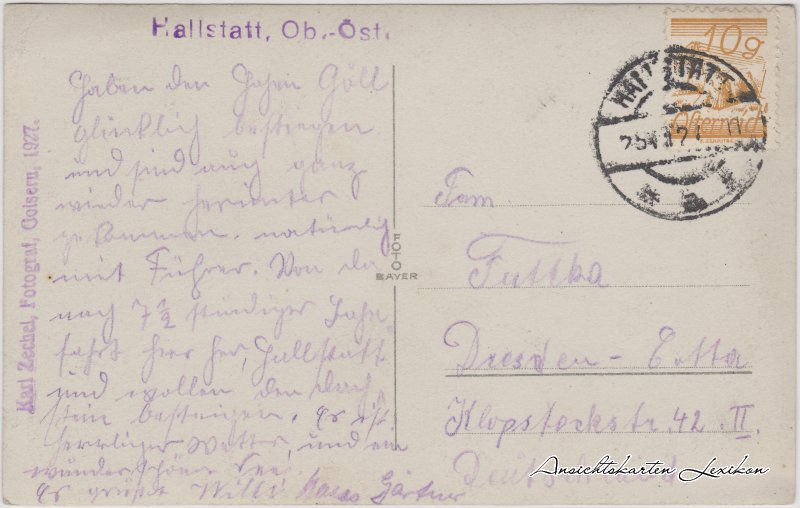 Hallstatt, Ob.-Öst.
Haben den Hohen Göll
glücklich bestiegen
und sind auch ganz
wieder herunter
gekommen. natürlich
mit Führer. Von da
nach 7 1/2 stündiger
fahrt hier her, Hallstatt
und wollen den Dach
stein besteigen. Es ist
herrliches Wetter, und ein
wunderschöner See.
Es grüßt Willi Gärtner
Karl Zechel, Fotograf, Goisern, 1927.
FOTO
BAYER
10g
Österreich
HALLSTATT
Fam.
Futtka
Dresden - Cotta
Klopstockstr. 42. II.
Deutschland
Ansichtskarten Lexikon